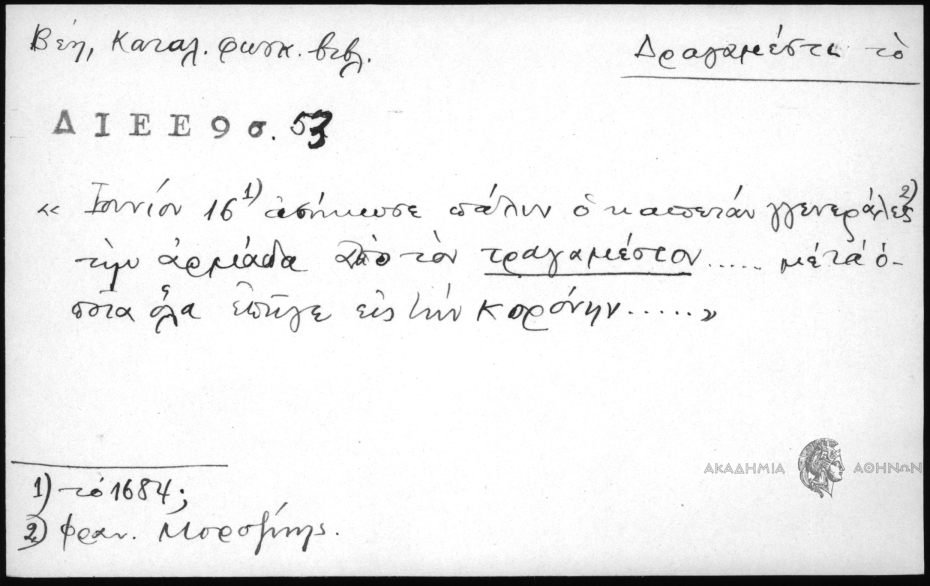 Βέη, Καταλ. φωκ. βιβλ.
Δραγαμέστι τὸ
ΔΙΕΕ 9 σ. 53
« Ἰουνίου 16 1) ἀσήκωσε πάλιν ὁ καπετάν γγενεράλες 2)
τὴν ἀρμάδα ἀπὸ τὸν τραγαμέστον..... μετά ὁ-
ποῖα ὅλα ἐπῆγε εἰς τὴν Κορόνην..... »
1) τὸ 1684;
2) Φραν. Μοροζίνης.
ΑΚΑΔΗΜΙΑ ΑΘΗΝΩΝ